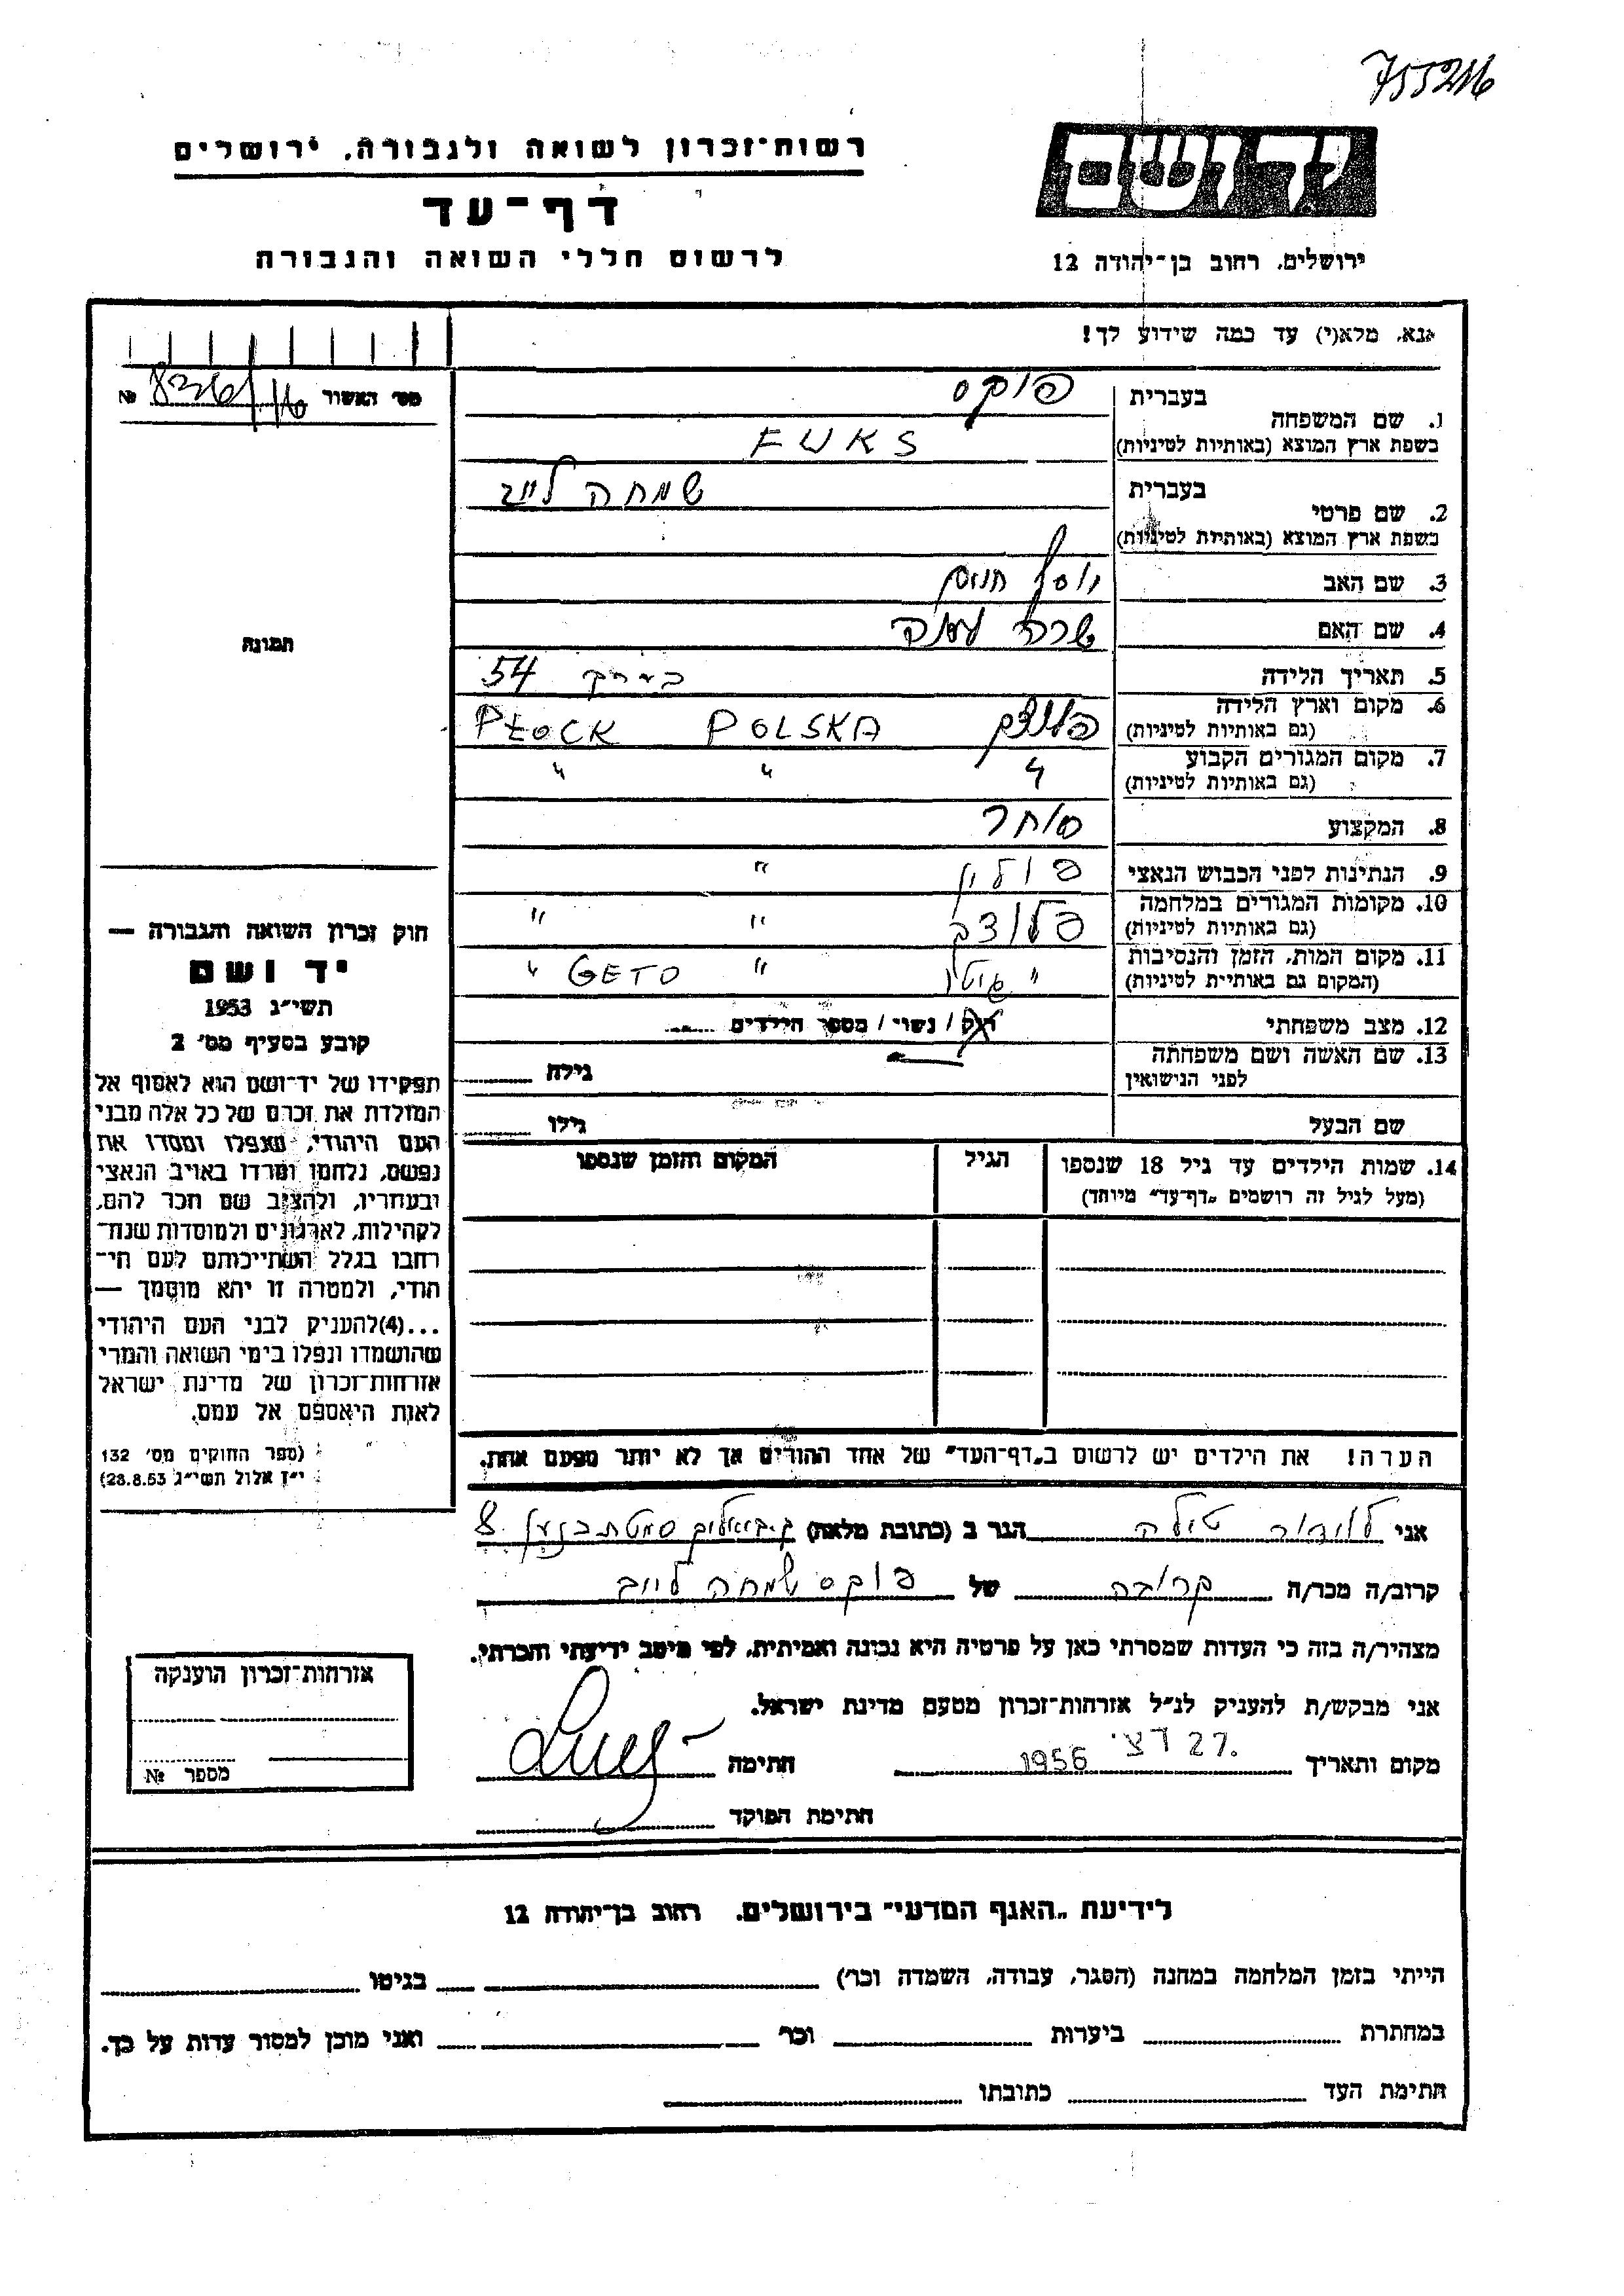 755216
רשות־זכרון לשואה ולגבורה, ירושלים
דף־עד
לרשום חללי השואה והגבורה
יד ושם
ירושלים, רחוב בן־יהודה 12
אנא, מלא(י) עד כמה שידוע לך!
מס׳ האשור № 836/16
1. שם המשפחה בעברית פוקס
בשפת ארץ המוצא (באותיות לטיניות) FUKS
2. שם פרטי בעברית שמחה לייב
בשפת ארץ המוצא (באותיות לטיניות)
3. שם האב יוסף
4. שם האם שרה
5. תאריך הלידה 54
6. מקום וארץ הלידה (גם באותיות לטיניות) פלוצק POLSKA PŁOCK
7. מקום המגורים הקבוע (גם באותיות לטיניות) " " "
8. המקצוע סוחר
9. הנתינות לפני הכבוש הנאצי פולין "
10. מקומות המגורים במלחמה (גם באותיות לטיניות) פלוצק " "
11. מקום המות, הזמן והנסיבות (המקום גם באותיות לטיניות) " גיטו " GETO "
12. מצב משפחתי רוק / נשוי / מספר הילדים
13. שם האשה ושם משפחתה לפני הנישואין גילה
שם הבעל גילו
14. שמות הילדים עד גיל 18 שנספו (מעל לגיל זה רושמים „דף־עד" מיוחד) הגיל המקום והזמן שנספו
הערה! את הילדים יש לרשום ב„דף־העד" של אחד ההורים אך לא יותר מפעם אחת.
תמונה
חוק זכרון השואה והגבורה —
יד ושם
תשי״ג 1953
קובע בסעיף מס׳ 2
תפקידו של יד־ושם הוא לאסוף אל
המולדת את זכרם של כל אלה מבני
העם היהודי, שנפלו ומסרו את
נפשם, נלחמו ומרדו באויב הנאצי
ובעוזריו, ולהציב שם וזכר להם,
לקהילות, לארגונים ולמוסדות שנח־
רבו בגלל השתייכותם לעם היה־
ודי, ולמטרה זו יהא מוסמך —
...(4) להעניק לבני העם היהודי
שהושמדו ונפלו בימי השואה והמרי
אזרחות־זכרון של מדינת ישראל
לאות היאספם אל עמם.
(ספר החוקים מס׳ 132
י״ז אלול תשי״ג 28.8.53)
אני הגר ב (כתובת מלאה) 8
קרוב/ה מכר/ה קרובה של פוקס שמחה לייב
מצהיר/ה בזה כי העדות שמסרתי כאן על פרטיה היא נכונה ואמיתית, לפי מיטב ידיעתי והכרתי.
אני מבקש/ת להעניק לנ״ל אזרחות־זכרון מטעם מדינת ישראל.
מקום ותאריך 27. דצ׳ 1956 חתימה
חתימת הפוקד
אזרחות־זכרון הוענקה
מספר №
לידיעת „האגף המדעי" בירושלים, רחוב בן־יהודה 12
הייתי בזמן המלחמה במחנה (הסגר, עבודה, השמדה וכו׳) בגיטו
במחתרת ביערות וכו׳ ואני מוכן למסור עדות על כך.
חתימת העד כתובתו